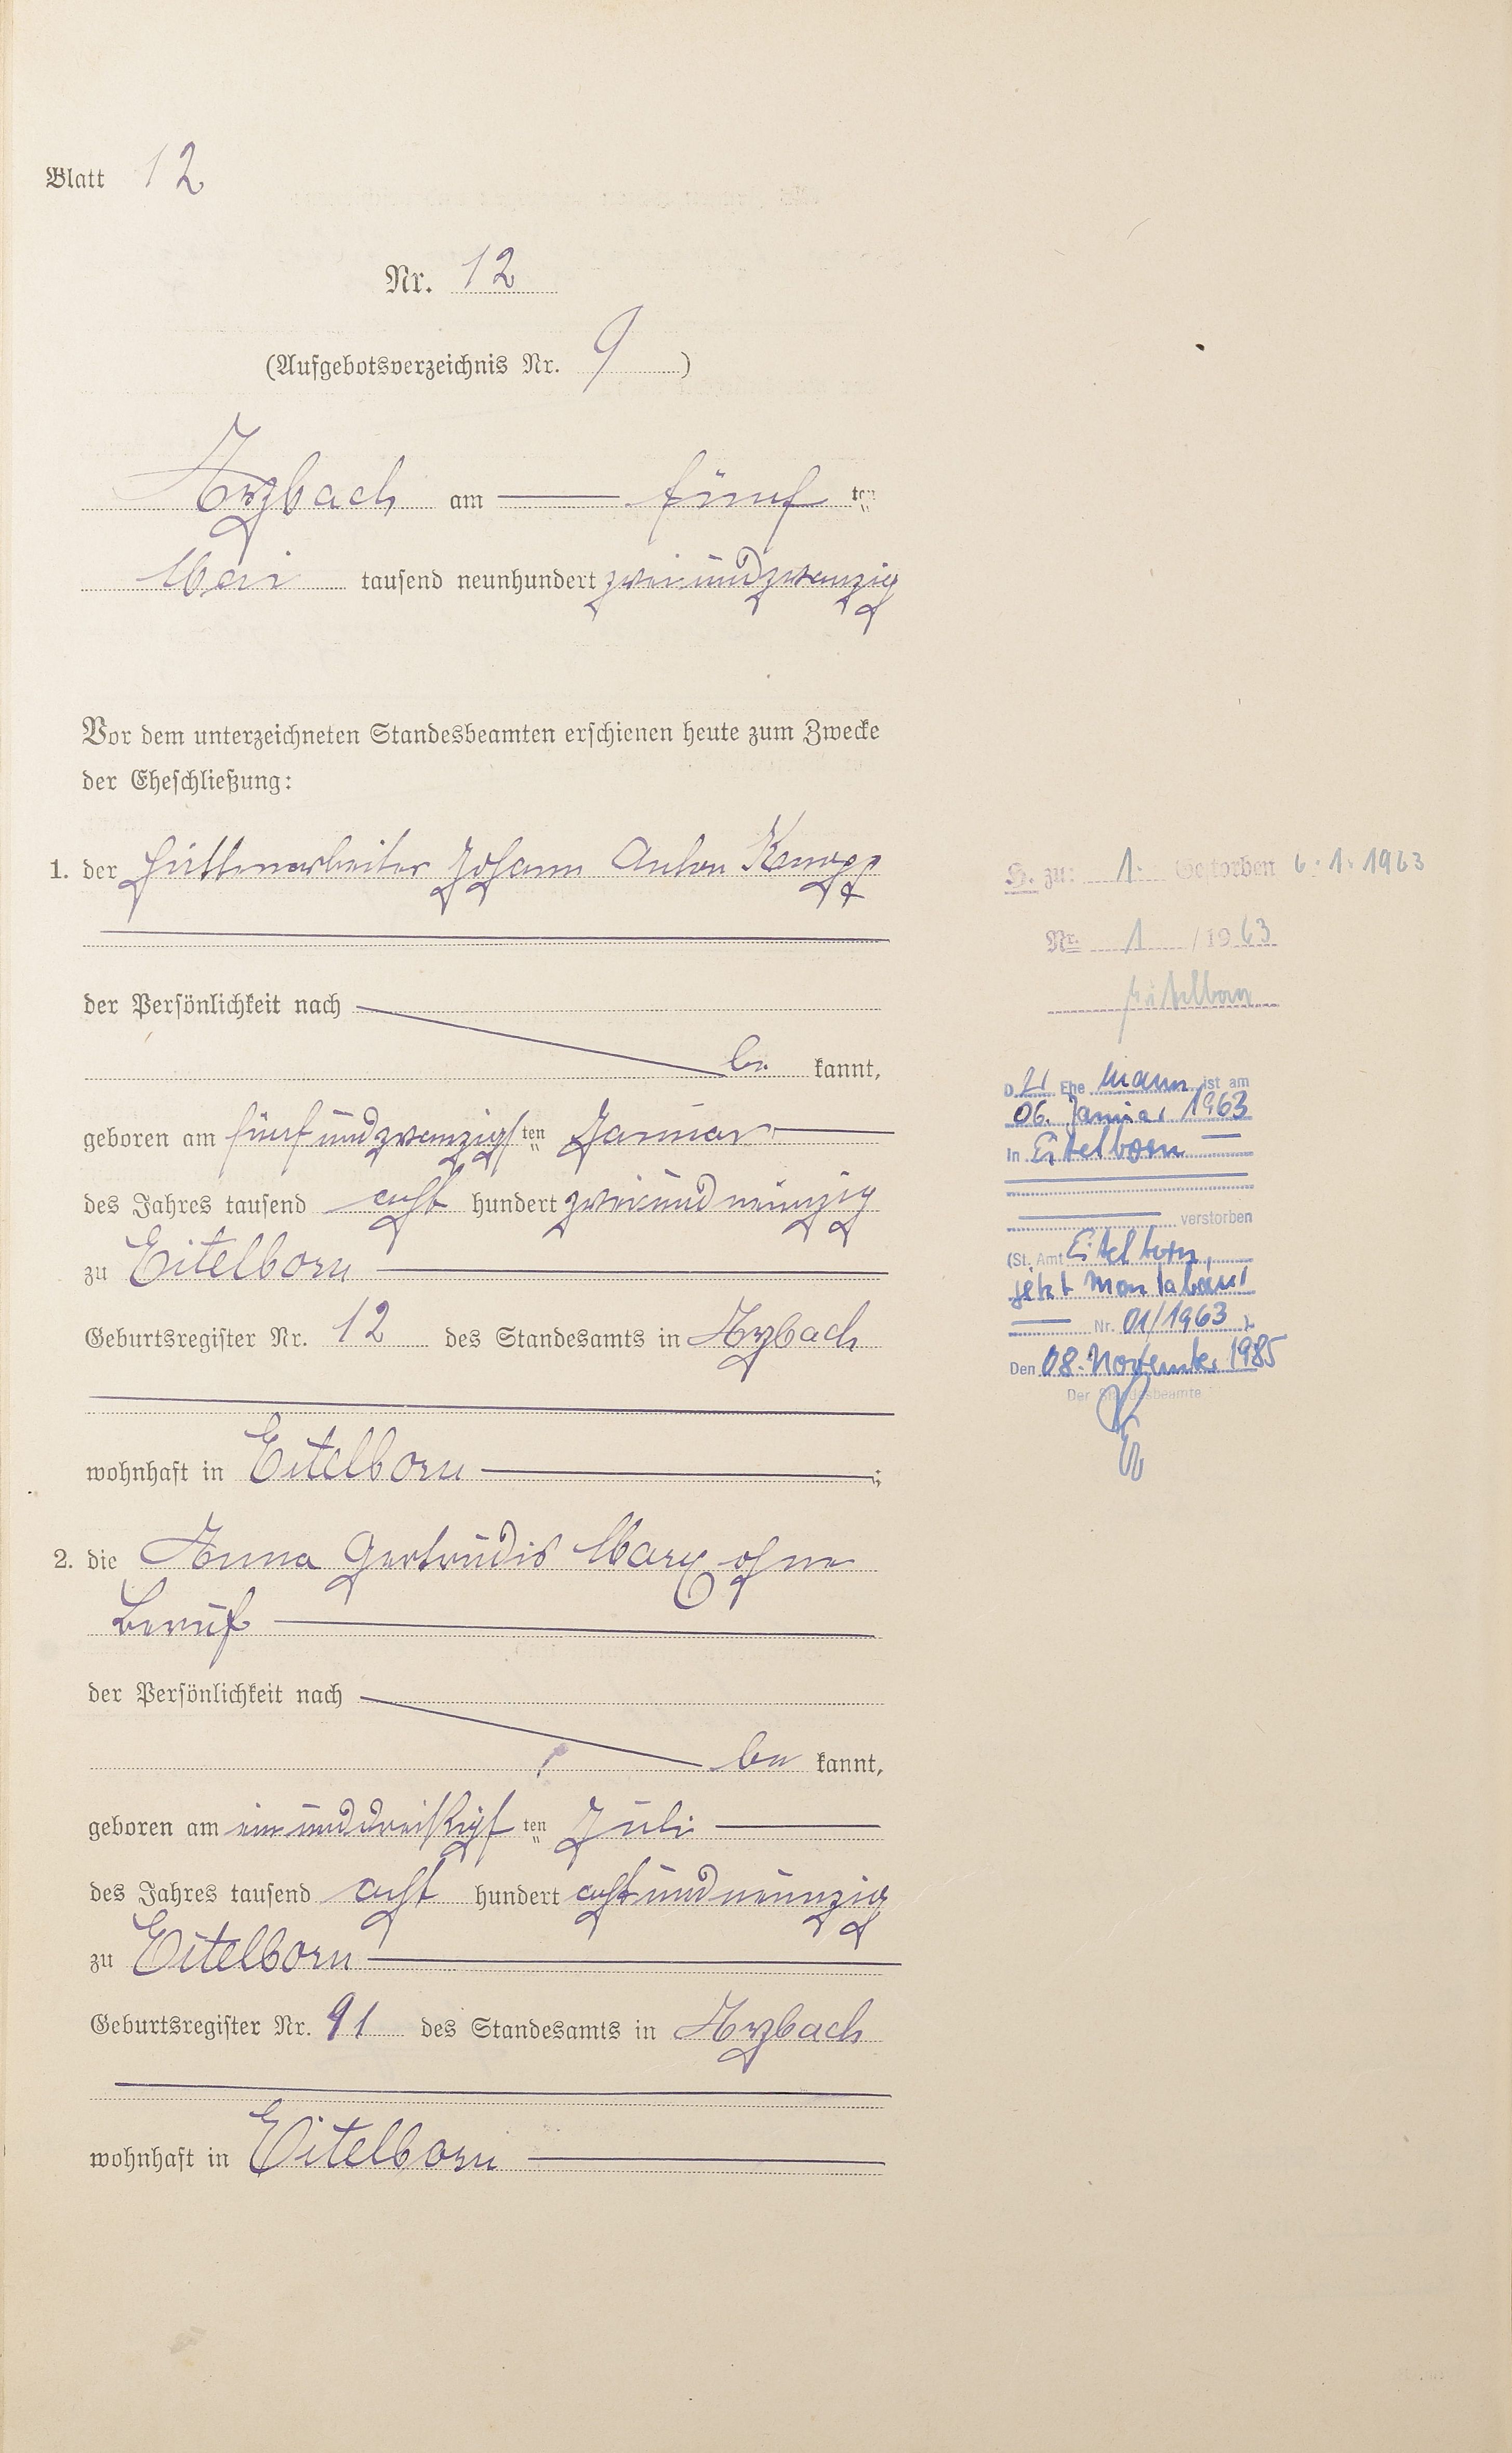 Blatt 12
Nr. 12
(Aufgebotsverzeichnis Nr. 9)
Arzbach am fünf ten
Mai tausend neunhundert zweiundzwanzig
Vor dem unterzeichneten Standesbeamten erschienen heute zum Zwecke
der Eheschließung:
1. der Hüttenarbeiter Johann Anton Knopp
der Persönlichkeit nach
be kannt,
geboren am fünfundzwanzigsten Januar
des Jahres tausend acht hundert zweiundneunzig
zu Eitelborn
Geburtsregister Nr. 12 des Standesamts in Arzbach
wohnhaft in Eitelborn ;
2. die Anna Gertrudis Marx ohne
Beruf
der Persönlichkeit nach
be kannt,
geboren am einunddreißigsten Juli
des Jahres tausend acht hundert achtundneunzig
zu Eitelborn
Geburtsregister Nr. 91 des Standesamts in Arzbach
wohnhaft in Eitelborn
H. zu: 1. Gestorben 6.1.1963
Nr. 1 / 1963
Eitelborn
Der Ehe mann ist am
06. Januar 1963
in Eitelborn
verstorben
(St. Amt Eitelborn,
jetzt Montabaur
Nr. 01/1963 )
Den 08. November 1985
Der Standesbeamte